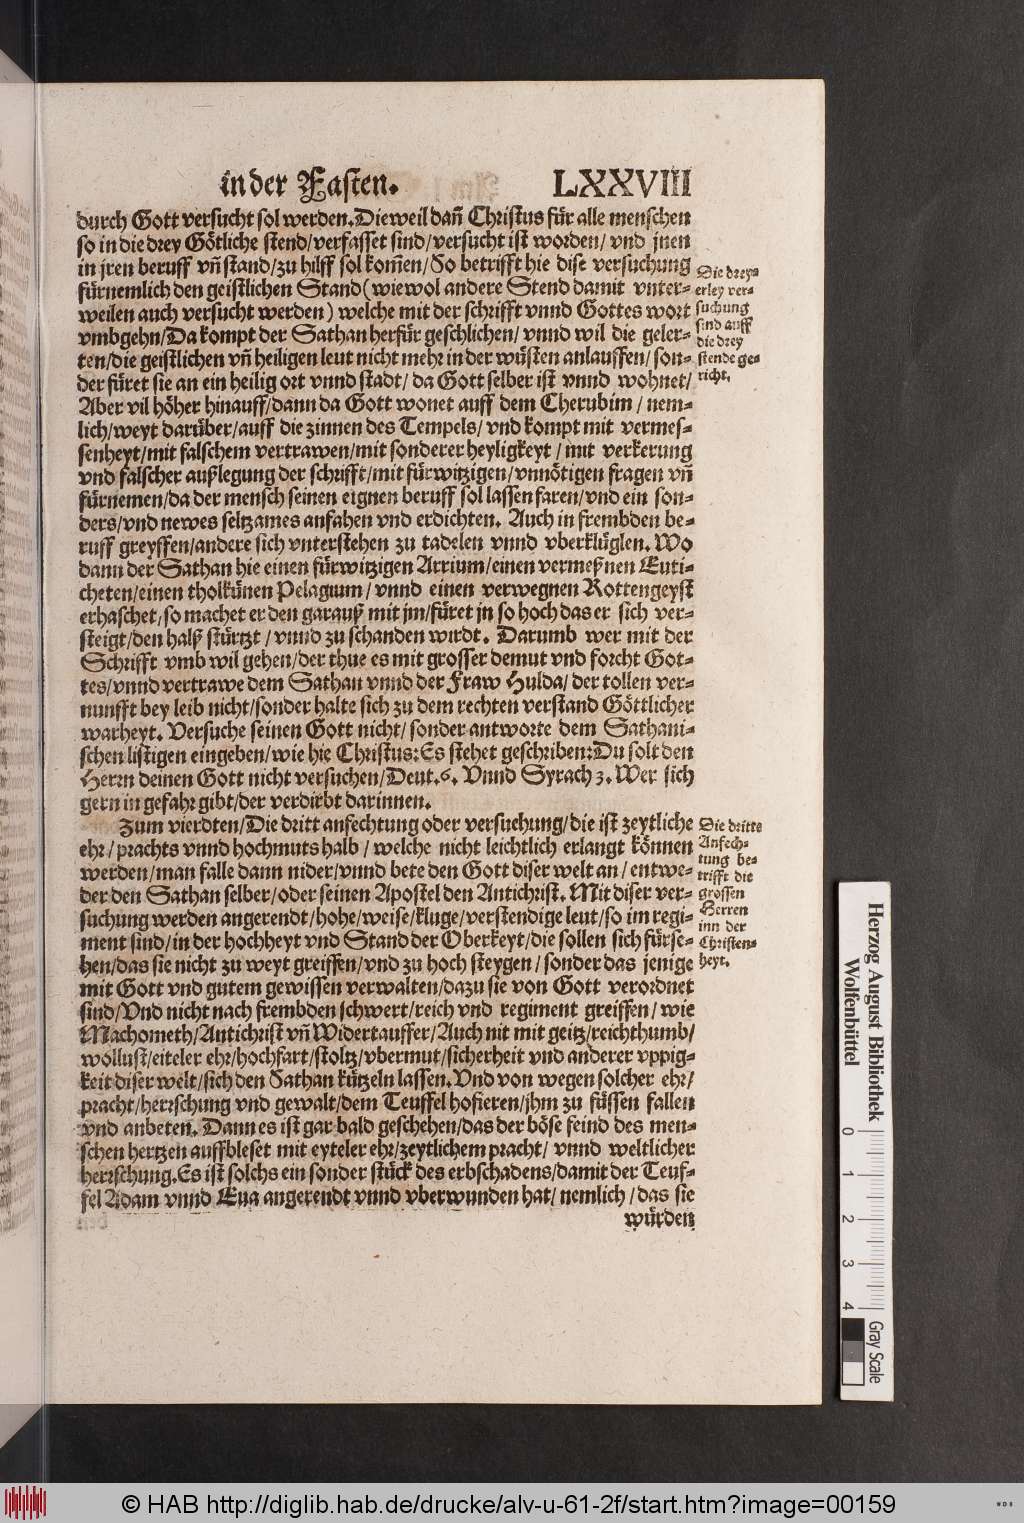 in der Fasten. LXXVIII
durch Gott versucht sol werden. Dieweil dañ Christus für alle menschen
so in die drey Götliche stend/verfasset sind/versucht ist worden/ vnd jnen
in jren beruff vñ stand/zu hilff sol kom̃en/So betrifft hie dise versuchung
fürnemlich den geistlichen Stand (wiewol andere Stend damit vnter-
weilen auch versucht werden) welche mit der schrifft vnnd Gottes wort
vmbgehn/Da kompt der Sathan herfür geschlichen/ vnnd wil die geler-
ten/die geistlichen vñ heiligen leut nicht mehr in der wüsten anlauffen/ son-
der füret sie an ein heilig ort vnnd stadt/ da Gott selber ist vnnd wohnet/
Aber vil höher hinauff/dann da Gott wonet auff dem Cherubim / nem-
lich/weyt darüber/auff die zinnen des Tempels/ vnd kompt mit vermes-
senheyt/mit falschem vertrawen/mit sonderer heyligkeyt / mit verkerung
vnd falscher außlegung der schrifft/mit fürwitzigen/vnnötigen fragen vñ
fürnemen/da der mensch seinen eignen beruff sol lassen faren/vnd ein son-
ders/vnd newes seltzames anfahen vnd erdichten. Auch in frembden be-
ruff greyffen/andere sich vnterstehen zu tadelen vnnd vberklüglen. Wo
dann der Sathan hie einen fürwitzigen Arrium/einen vermeßnen Euti-
cheten/einen tholkünen Pelagium/ vnnd einen verwegnen Rottengeyst
erhaschet/so machet er den garauß mit jm/füret jn so hoch das er sich ver-
steigt/den halß stürtzt / vnnd zu schanden wirdt. Darumb wer mit der
Schrifft vmb wil gehen/der thue es mit grosser demut vnd forcht Got-
tes/vnnd vertrawe dem Sathan vnnd der Fraw Hulda/ der tollen ver-
nunfft bey leib nicht/sonder halte sich zu dem rechten verstand Göttlicher
warheyt. Versuche seinen Gott nicht/ sonder antworte dem Sathani-
schen listigen eingeben/wie hie Christus: Es stehet geschriben: Du solt den
Herrn deinen Gott nicht versuchen/Deut.6. Vnnd Syrach 3. Wer sich
gern in gefahr gibt/der verdirbt darinnen.
Die drey-
erley ver-
suchung
sind auff
die drey
stende ge-
richt.
Zum vierdten/Die dritt anfechtung oder versuchung/die ist zeytliche
ehr/prachts vnnd hochmuts halb / welche nicht leichtlich erlangt können
werden/man falle dann nider/vnnd bete den Gott diser welt an/ entwe-
der den Sathan selber/oder seinen Apostel den Antichrist. Mit diser ver-
suchung werden angerendt/hohe/weise/kluge/verstendige leut/so im regi-
ment sind/in der hochheyt vnd Stand der Oberkeyt/die sollen sich fürse-
hen/das sie nicht zu weyt greiffen/vnd zu hoch steygen/ sonder das jenige
mit Gott vnd gutem gewissen verwalten/dazu sie von Gott verordnet
sind/Vnd nicht nach frembden schwert/reich vnd regiment greiffen/ wie
Machometh/Antichrist vñ Widertauffer/Auch nit mit geitz/reichthumb/
wollust/eiteler ehr/hochfart/stoltz/vbermut/sicherheit vnd anderer vppig-
keit diser welt/sich den Sathan kützeln lassen. Vnd von wegen solcher ehr/
pracht/herrschung vnd gewalt/dem Teuffel hofieren/jhm zu füssen fallen
vnd anbeten. Dann es ist gar bald geschehen/das der böse feind des men-
schen hertzen auffbleset mit eyteler ehr/zeytlichem pracht/ vnnd weltlicher
herrschung. Es ist solchs ein sonder stück des erbschadens/damit der Teuf-
fel Adam vnnd Eua angerendt vnnd vberwunden hat/ nemlich / das sie
würden
Die dritte
Anfech-
tung be-
trifft die
grossen
Herren
inn der
Christen-
heyt.
Herzog August Bibliothek
Wolfenbüttel
0 1 2 3 4
Gray Scale
© HAB http://diglib.hab.de/drucke/alv-u-61-2f/start.htm?image=00159